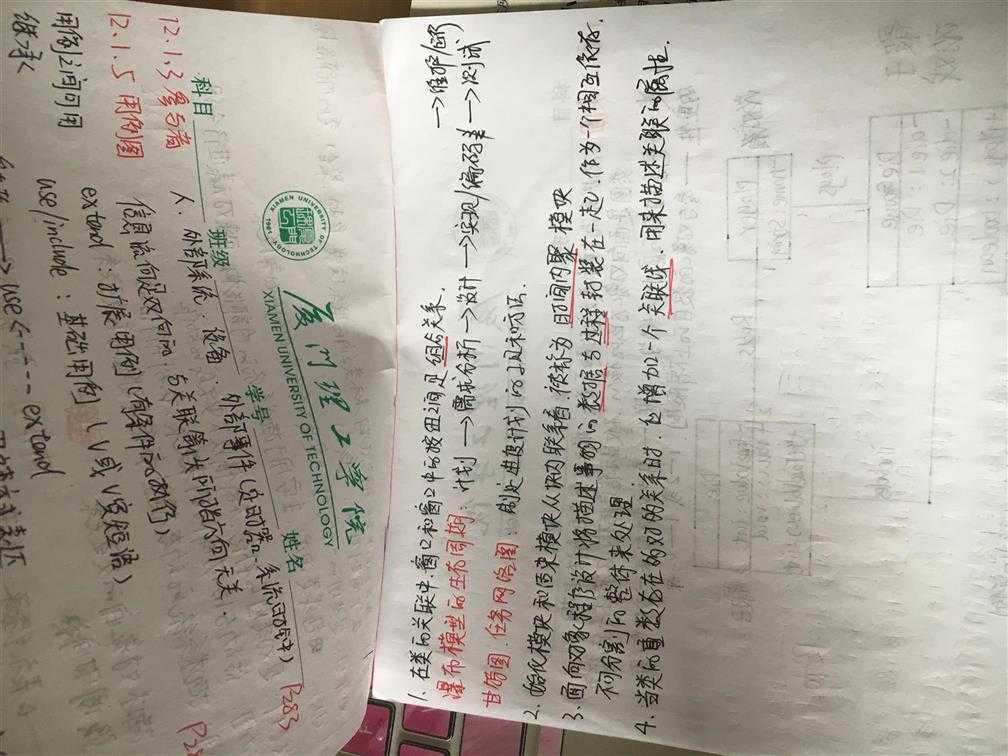 厦门理工学院
XIAMEN UNIVERSITY OF TECHNOLOGY
XIAMEN UNIVERSITY OF TECHNOLOGY
1981
科目
班级
学号
姓名
12.1.3 参与者
人、外部系统、设备、外部事件(定时器、系统时钟) P283
信息流向是双向的,与关联箭头所指方向无关.
12.1.5 用例图
extend:扩展用例(有条件而执行)
use/include:基础用例
用例之间可用
use<----extend
继承
1. 在类的关联中,窗口和窗口中的按钮之间是组合关系.
瀑布模型的生存周期:计划→需求分析→设计→实现/编码→测试
→维护/运行
甘特图、任务网络图: 制定进度计划的工具和方法.
2. 始化模块和结束模块从从内联系看,被称为时间内聚模块
3. 面向对象程序设计将描述事物的数据与过程封装在一起,作为一个相互依存、
不可分割的整体来处理
4. 当类的重数存在多对多的关系时,应增加一个关联类,用来描述关联的属性.